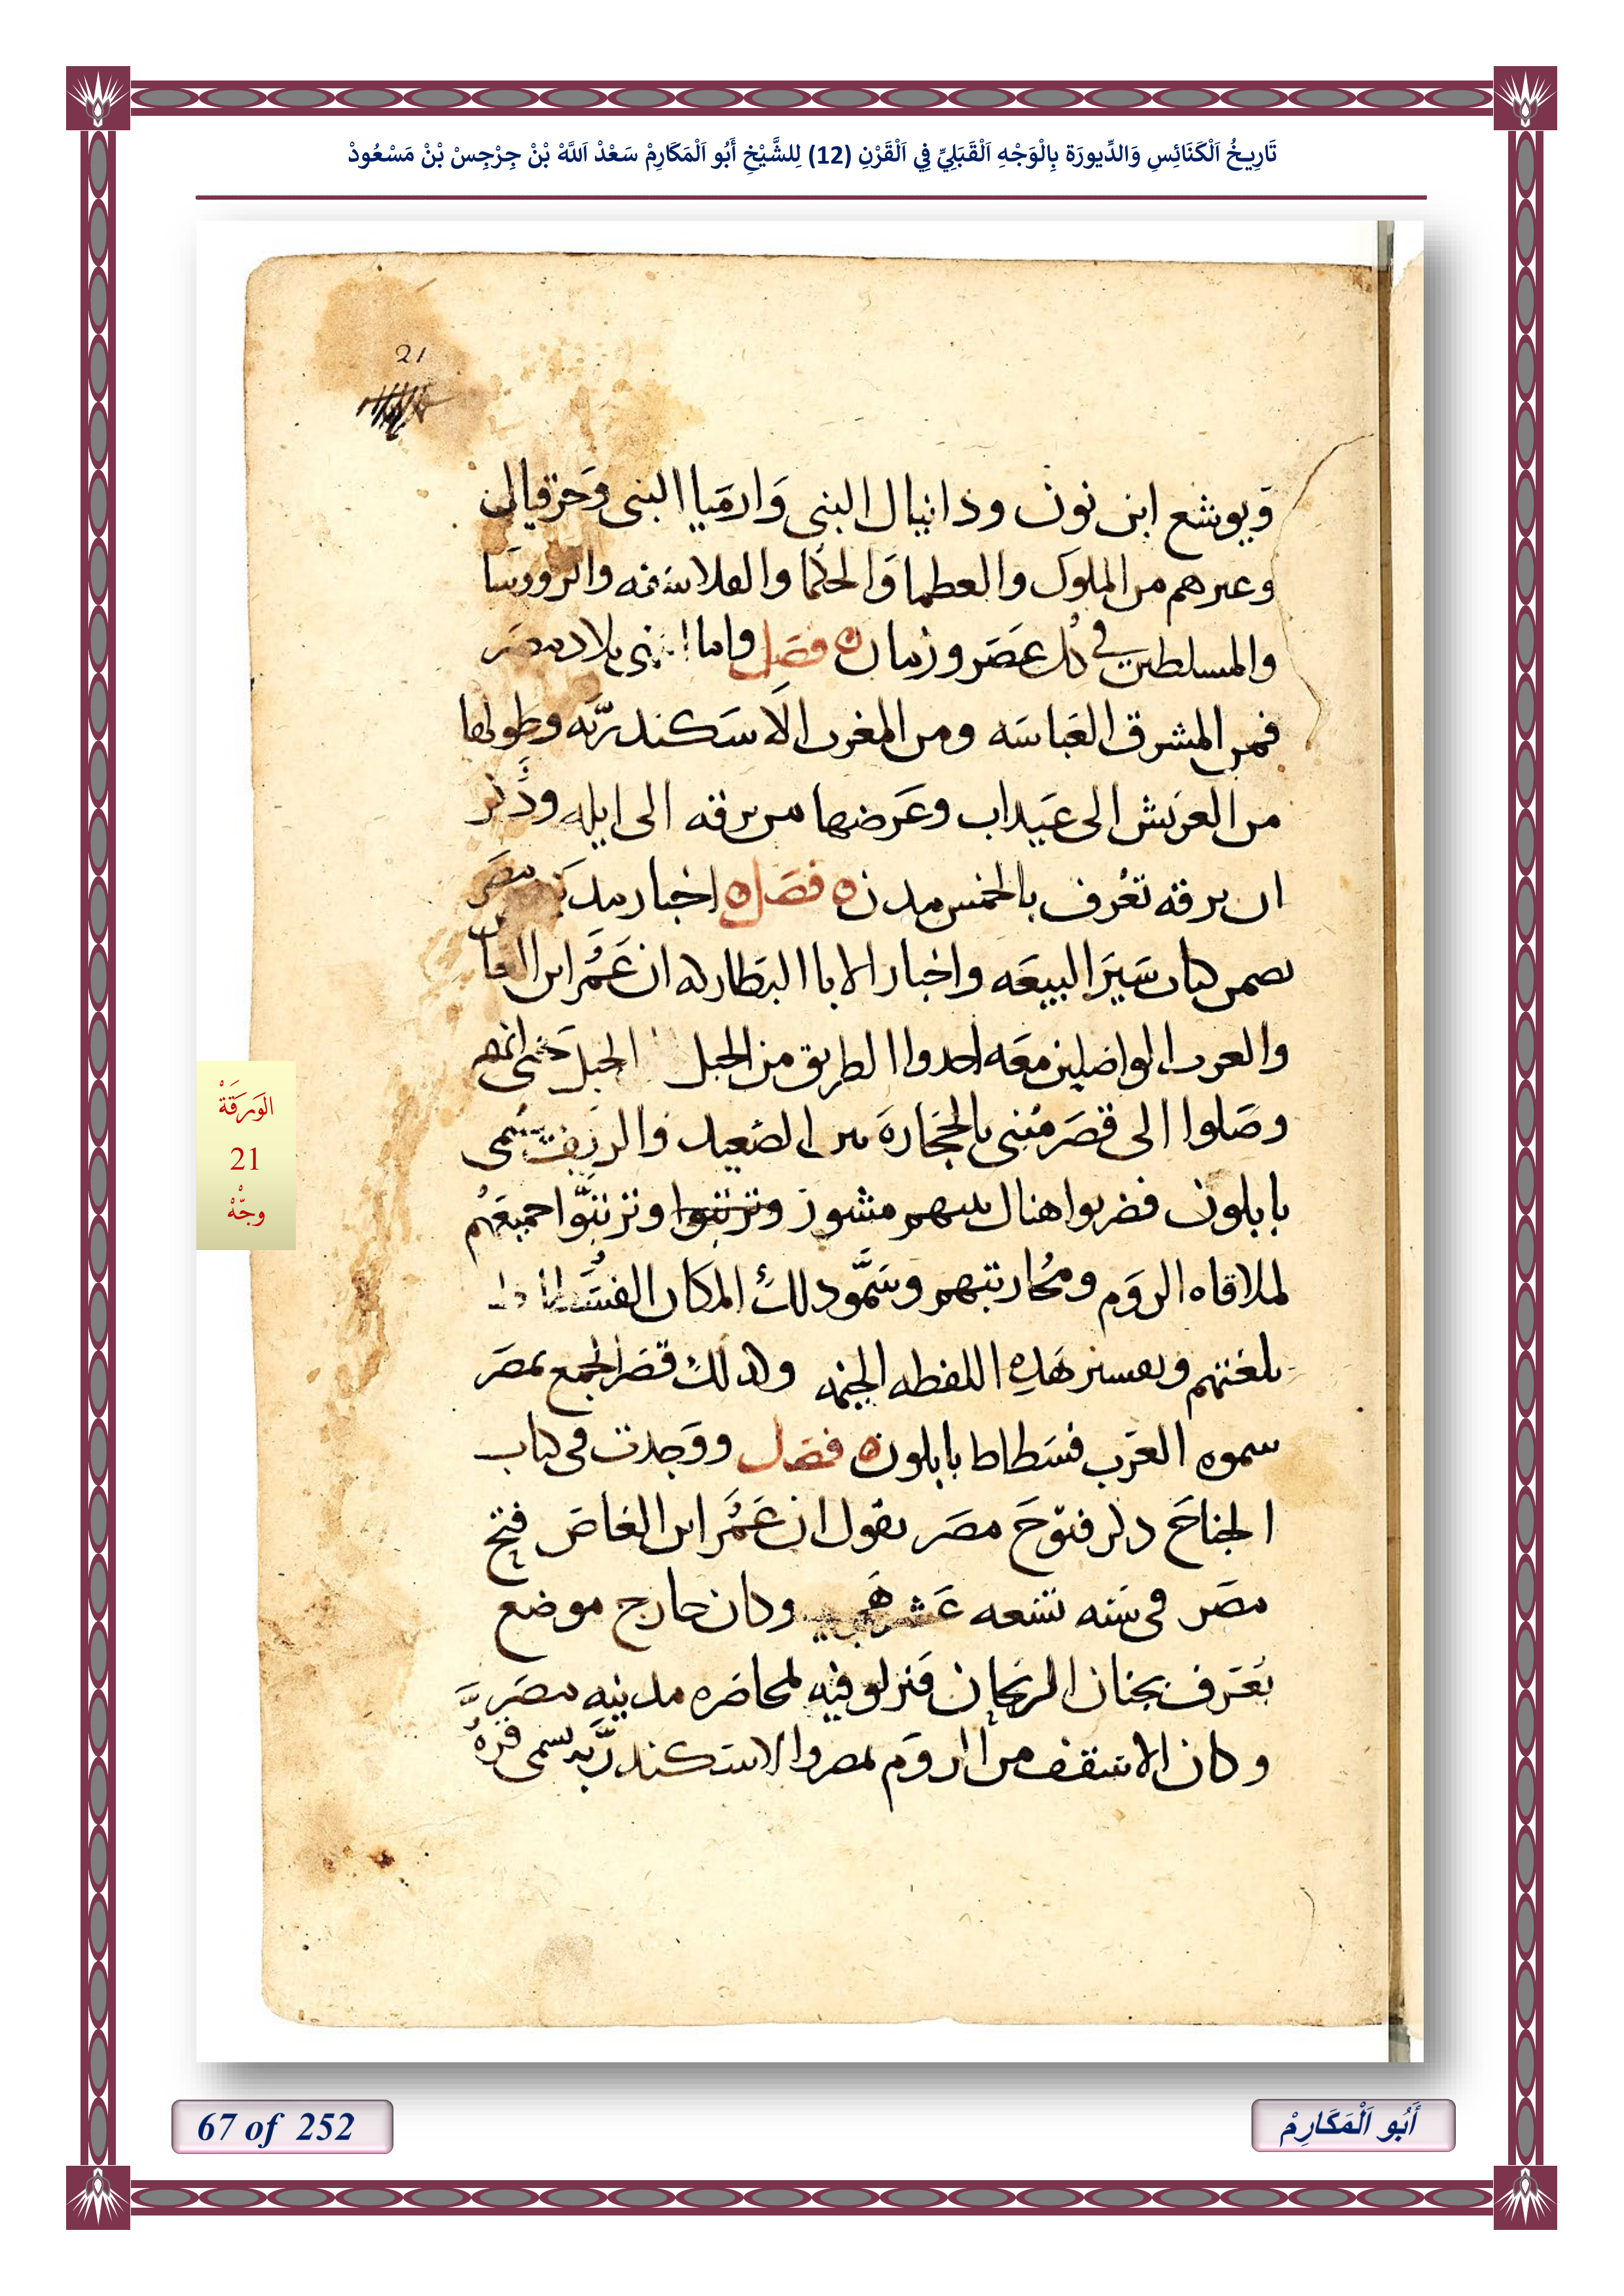 تَارِيخُ اَلْكَنَائِسِ وَالدِّيورَة بِالْوَجْهِ اَلْقَبَلِيِّ فِي اَلْقَرْنِ (12) لِلشَّيْخِ أَبُو اَلْمَكَارِمْ سَعْدْ اَللَّهْ بْنْ جِرْجِسْ بْنْ مَسْعُودْ
21
ويوشع ابن نون ودانيال البنى وارميا البنى وحزقيال
وعيرهم من الملوك والعطما والحكما والفلاسفه والرووسا
والمسلطين في كل عصر وزمان ه فصل واما بلاد مصر
فمن المشرق العباسه ومن المغرب الاسكندريه وطولها
من العريش الى عيداب وعرضها من برقه الى ايله وذكر
ان برقه تعرف بالخمس مدن ه فصل ه اخبار مدينه مصر
تضمن كتاب سير البيعه واخبار الابا البطاركه ان عمر ابن العاص
والعرب الواصلين معه اخدوا الطريق من الجبل الجبل حتى انهم
وصلوا الى قصر مبنى بالحجاره بين الصعيد والريف يسمى
بابلون فضربوا هناك بيتهم مشور وترتبوا وترتبوا جميعهم
لملاقاه الروم ومحاربتهم وسمود لك المكان الفسطاط
بلغتهم وتفسير هده اللفطه الخيمه وكدلك قصر الجمع بمصر
سموه العرب فسطاط بابلون ه فصل ووجدت في كتاب
الجناح دكر فتوح مصر يقول ان عمر ابن العاص فتح
مصر في سنه تسعه عشر وكان خارج موضع
يعرف بجنان الريحان فنزلو فيه لمحاصره مدينه مصر
وكان الاسقف من الروم بمصر والاسكندريه يسمى قره
الوَرَقَةْ
21
وجّهْ
67 of 252
أَبُو اَلْمَكَارِمْ